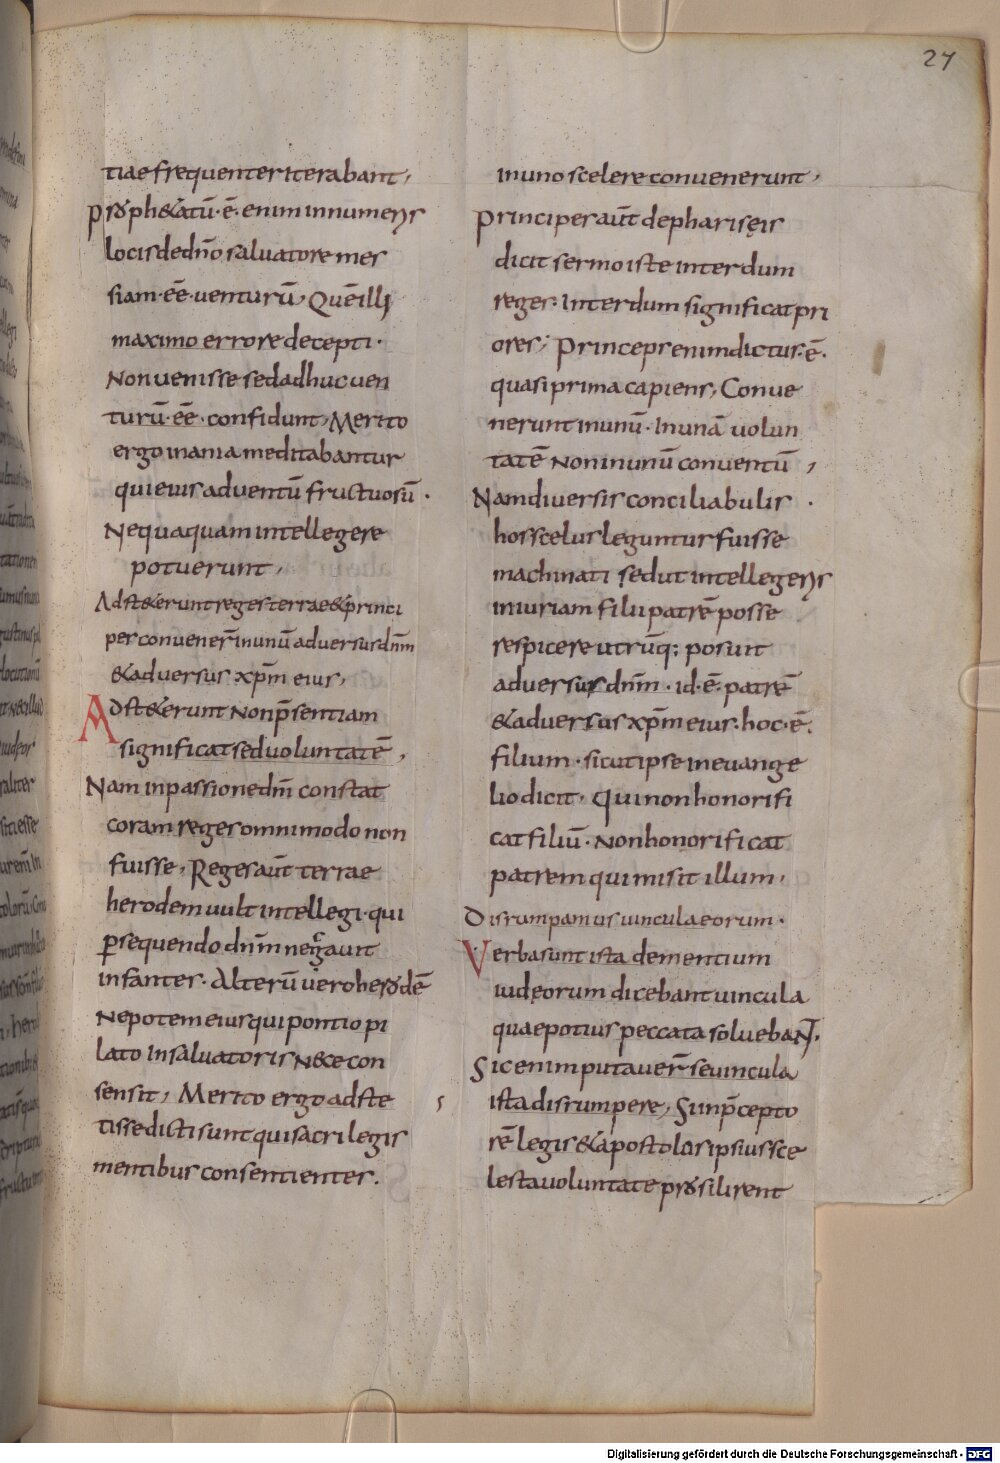 27
tiae frequenter iterabant,
Proph&atū·ē·enim innumeris
locis de dnō salvatore mes
siam·eē·venturū, Quē illi
maximo errore decepti·
Non venisse sed adhuc ven
turū·eē·confidunt, Merito
ergo inania meditabantur
qui eius adventū fructuosū·
Nequaquam intellegere
potuerunt,
Adst&erunt reges terrae & princi
pes convener̄ in unū adversus dnm̄
& adversus xpm̄ eius,
Adst&erunt non p̄sentiam
significat sed voluntatē,
Nam in passione dnī constat
coram reges omnimodo non
fuisse, Reges aūt terrae
herodem vult intellegi·qui
ꝑsequendo dnm̄ negavit
infantes·Alterū vero herodē
Nepotem eius qui pontio pi
lato in salvatoris N&ce con
sensit, Merito ergo adste
tisse dicti sunt qui sacrilegis
mentibus consentientes.
in uno scelere convenerunt,
Principes aūt de phariseis
dicit sermo iste interdum
reges·Interdum significat pri
ores; Princeps enim dictus·ē·
quasi prima capiens, Conve
nerunt in unū·In unā volun
tatē Non in unū conventū,
Nam diversis conciliabulis·
hos scelus leguntur fuisse
machinati sed ut intellegeris
iniuriam filii patrē posse
respicere utrūq; posuit
adversus dnm̄·id·ē·patrē
& adversus xpm̄ eius·hoc·ē·
filium·sicut ipse in evange
lio dicit, Qui non honorifi
cat filiū·Non honorificat
patrem qui misit illum,
Disrumpamus vincula eorum·
Verba sunt ista dementium
iudęorum dicebant vincula
quae potius peccata solvebaNT·
Sic enim putaver̄ se vincula
ista disrumpere, Si in p̄cepto
rē legis & apostolos ipsius sce
lesta voluntate prosilirent
Digitalisierung gefördert durch die Deutsche Forschungsgemeinschaft - DFG